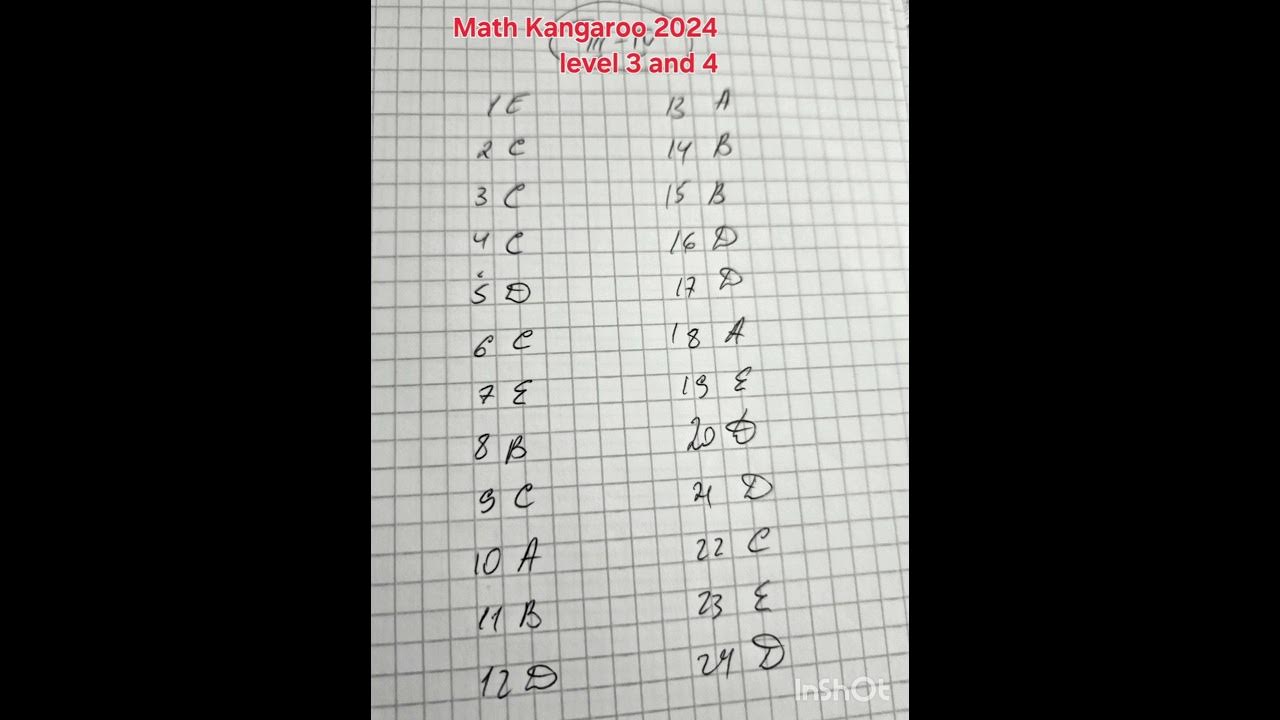 Math Kangaroo 2024
III - IV
level 3 and 4
1 E
2 C
3 C
4 C
5 D
6 C
7 E
8 B
9 C
10 A
11 B
12 D
13 A
14 B
15 B
16 D
17 D
18 A
19 E
20 D
21 D
22 C
23 E
24 D
InShOt